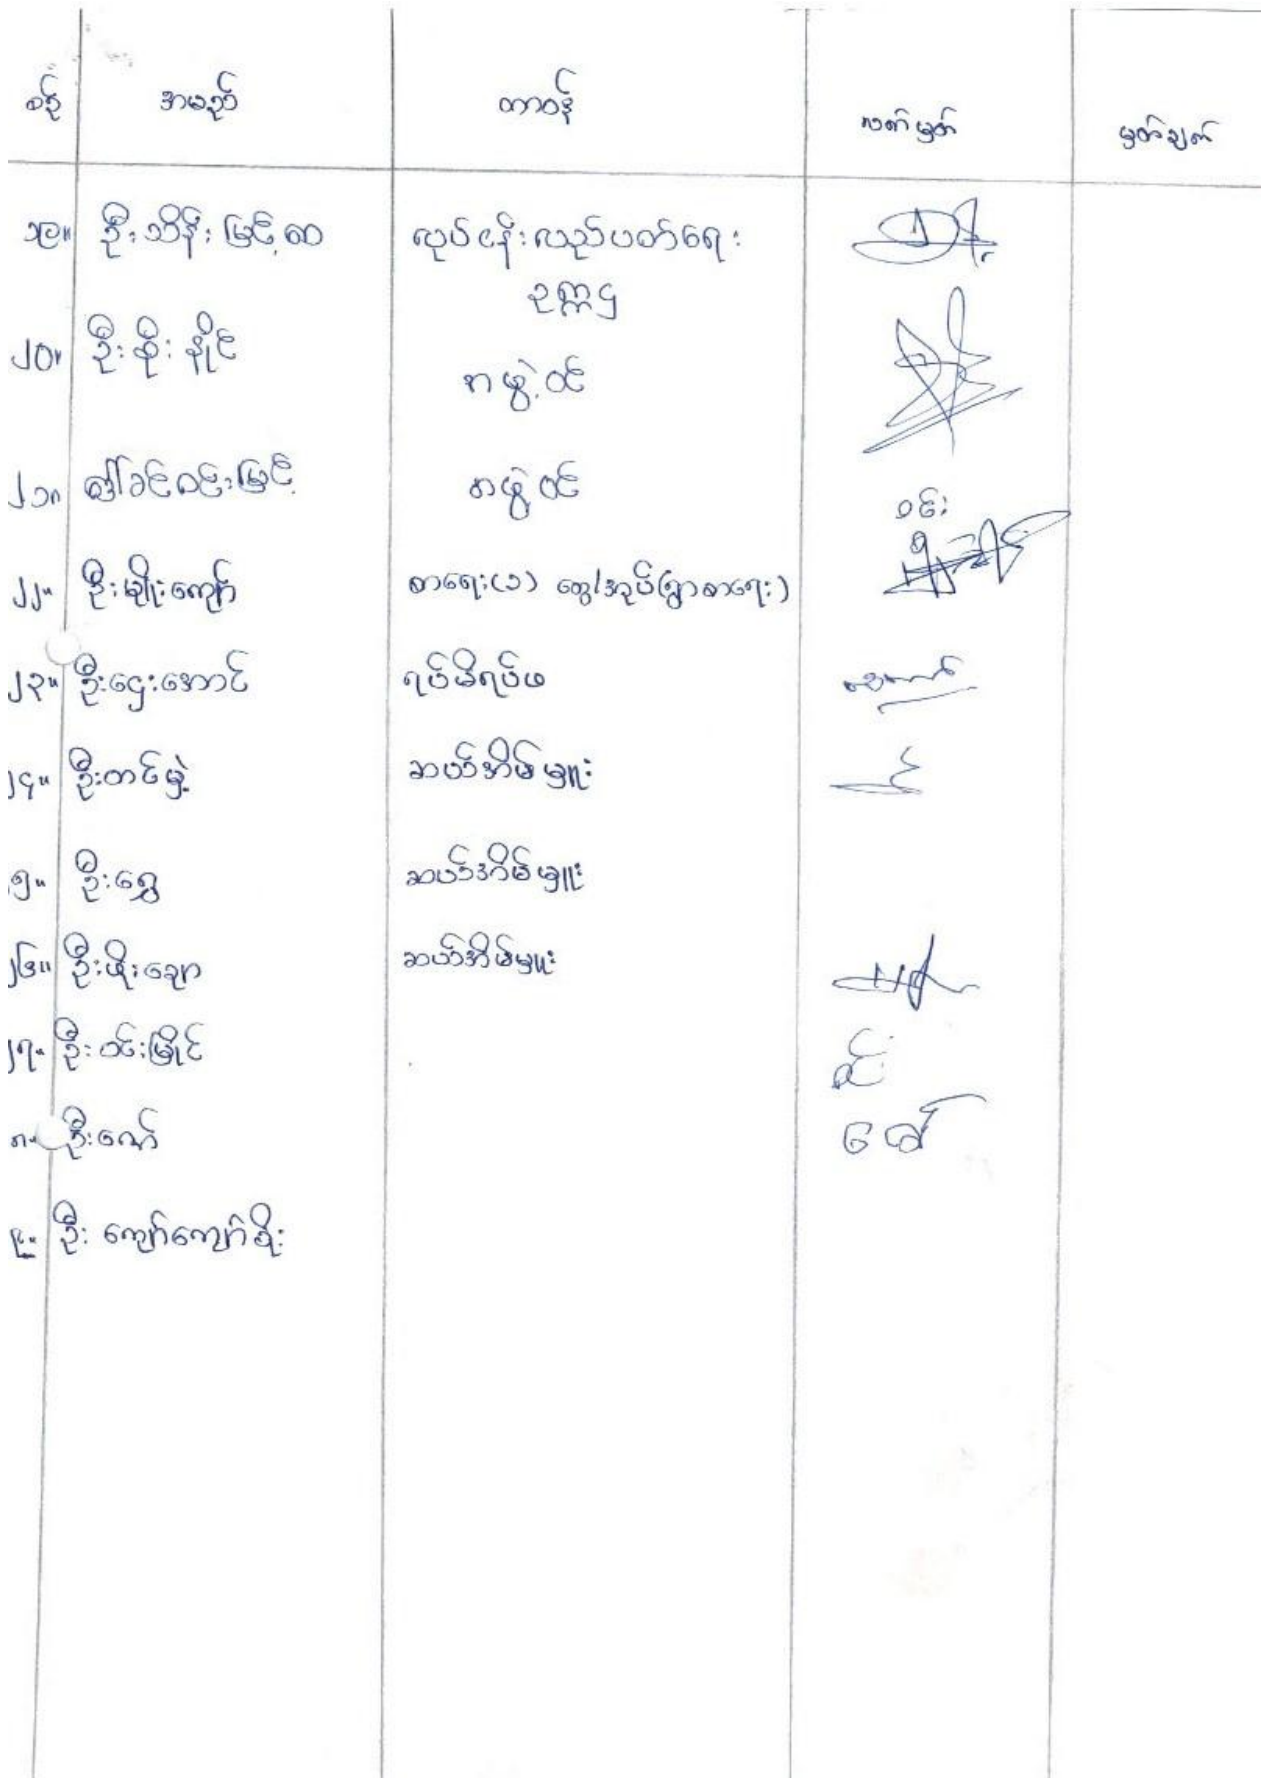 စဉ် အမည် တာဝန် လက်မှတ် မှတ်ချက်
၁၉။ ဦးသိန်းမြင့်ထာ လုပ်ငန်းလည်ပတ်ရေး
ဥက္ကဌ
၂၀။ ဦးစိုးနိုင် အဖွဲ့ဝင်
၂၁။ ဒေါ်ခင်ဝင်းမြင့် အဖွဲ့ဝင် ဝင်း
၂၂။ ဦးမျိုးကျော် စာရေး(၁) ထွေ/အုပ်(ရွာစာရေး)
၂၃။ ဦးဌေးအောင် ရပ်မိရပ်ဖ
၂၄။ ဦးတင်မှဲ့ ဆယ်အိမ်မှူး
၅။ ဦးရွှေ ဆယ်အိမ်မှူး
၂၆။ ဦးဖိုးချော ဆယ်အိမ်မှူး
၂၇။ ဦးဝင်းမြိုင် ဝင်း
၈။ ဦးဇော်
၉။ ဦးကျော်ကျော်စိုး